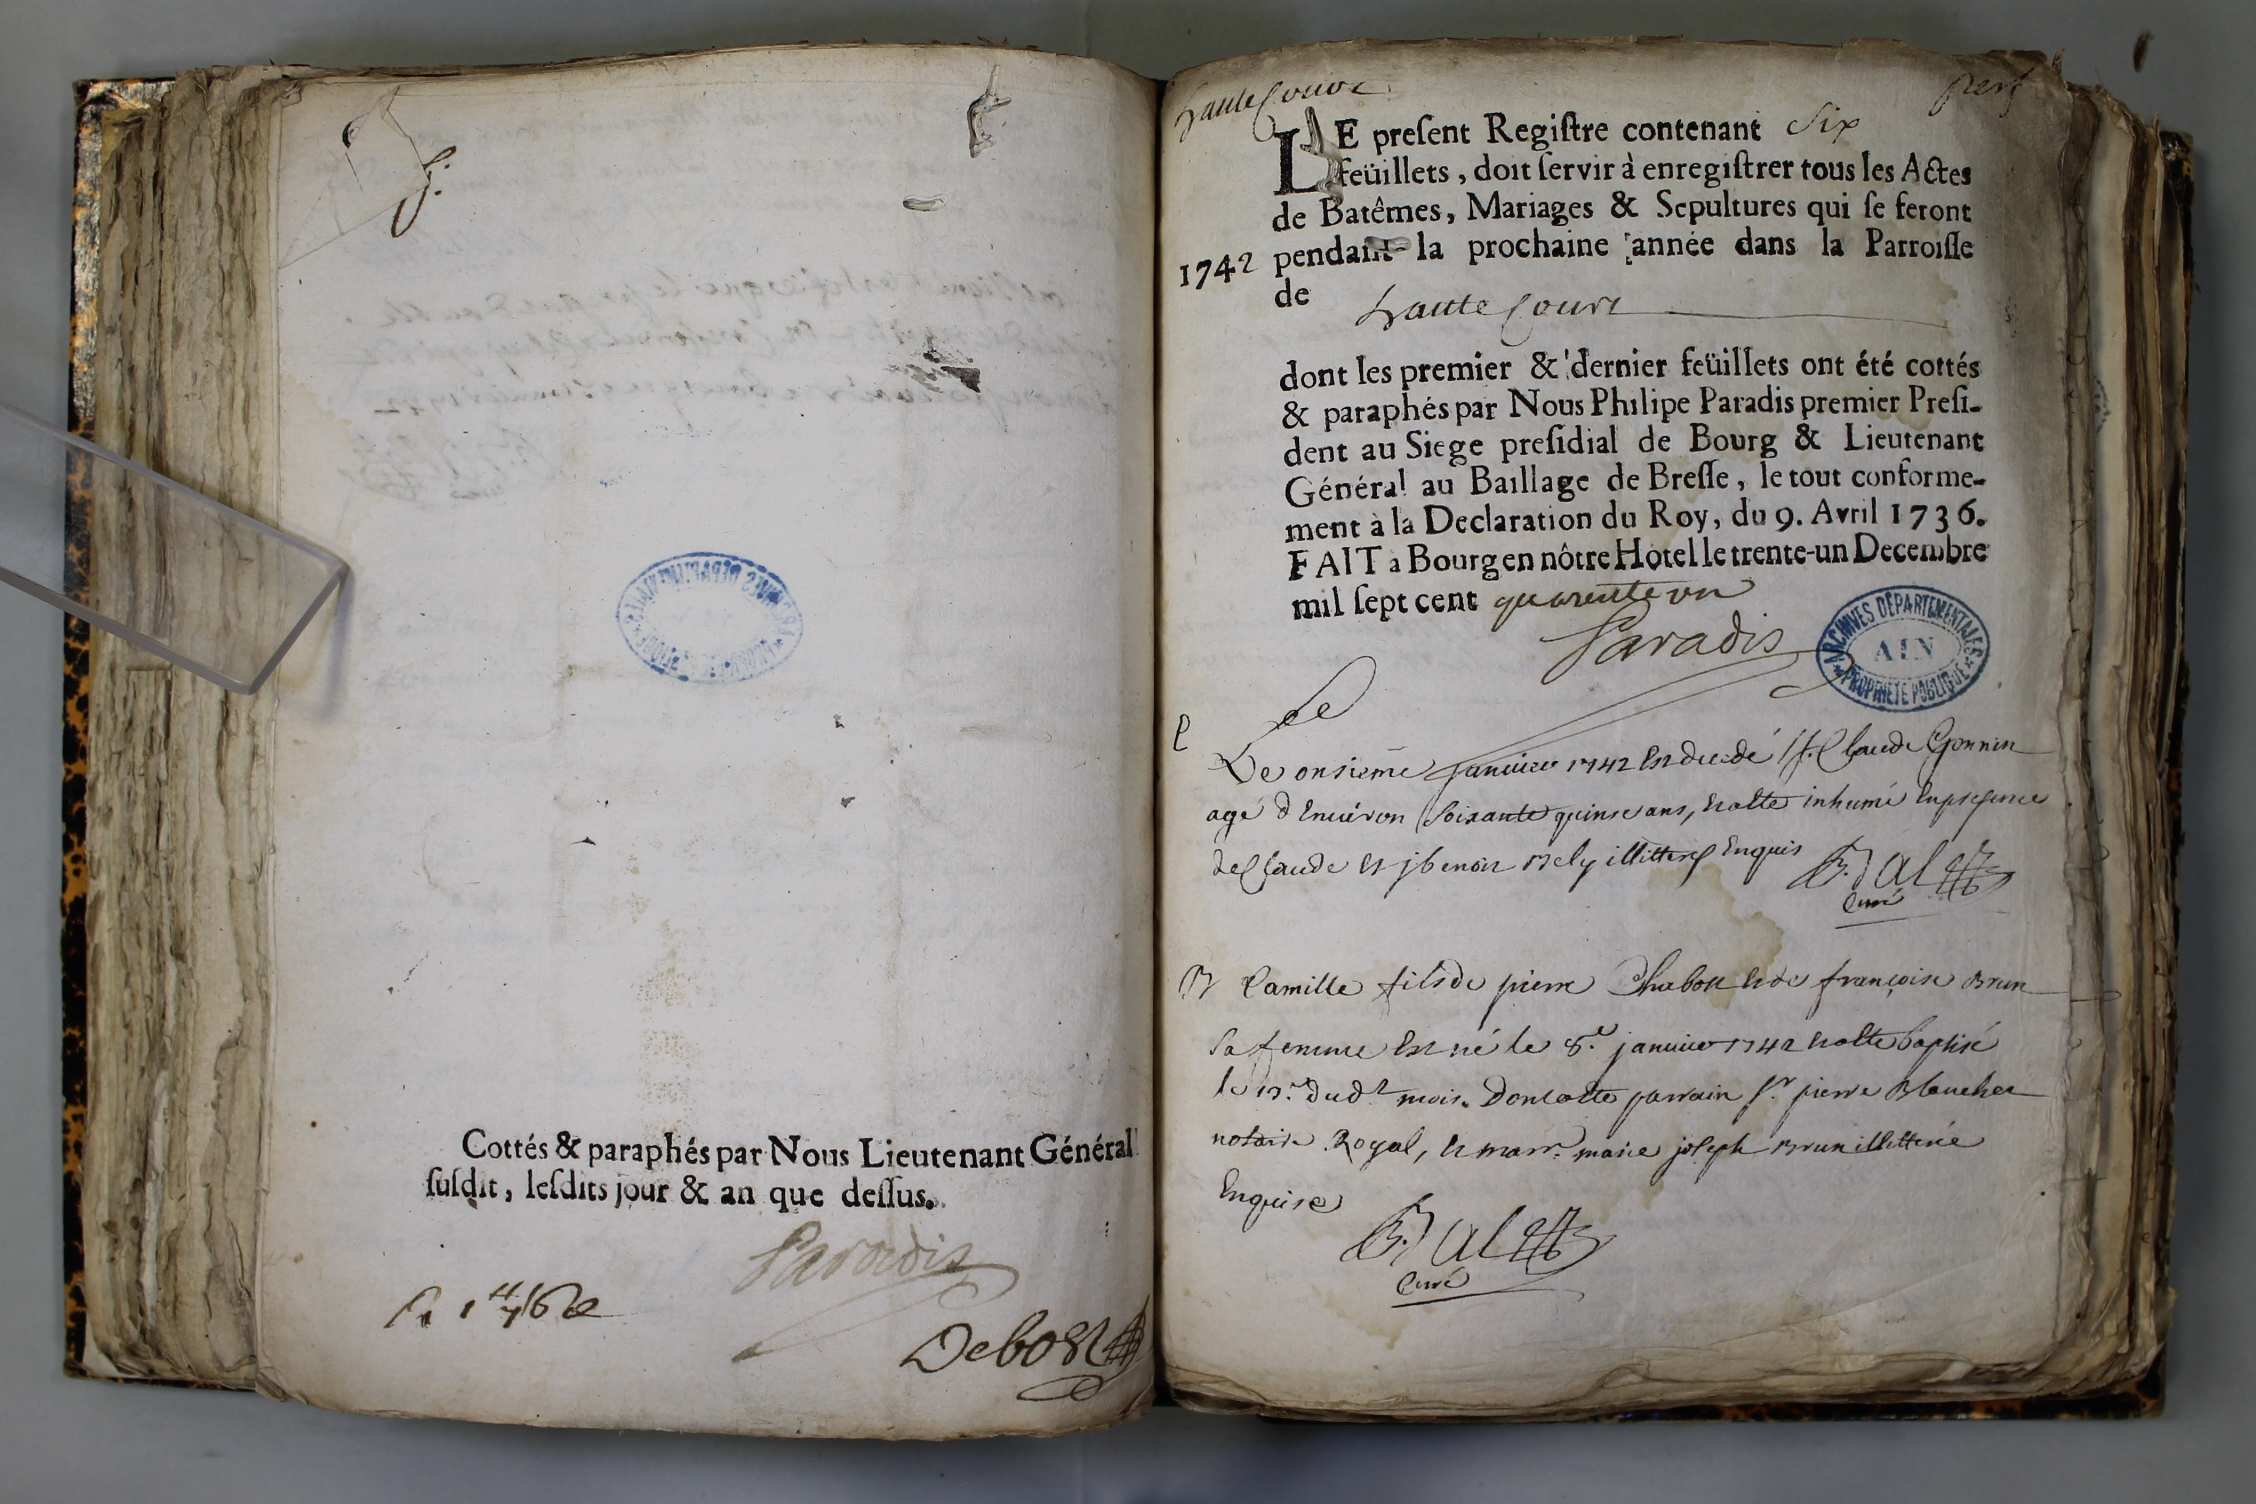 Cottés & paraphés par Nous Lieutenant Général
suſdit, leſdits jour & an que deſſus.
Paradis
Debost
haute Cour
LE preſent Regiſtre contenant Six
feüillets, doit ſervir à enregiſtrer tous les Actes
de Batêmes, Mariages & Sepultures qui ſe feront
pendant la prochaine année dans la Parroiſſe
1742
de haute Court
dont les premier & dernier feüillets ont été cottés
& paraphés par Nous Philipe Paradis premier Preſi-
dent au Siege preſidial de Bourg & Lieutenant
Général au Baillage de Breſſe, le tout conforme-
ment à la Declaration du Roy, du 9. Avril 1736.
FAIT à Bourg en nôtre Hôtel le trente-un Decembre
mil ſept cent quarente un
Paradis
ARCHIVES DÉPARTEMENTALES
AIN
PROPRIÉTÉ PUBLIQUE
Le onsieme janvier 1742 est decedé Claude Gonnin
agé d'environ soixante quinse ans, et a été inhumé en presence
de Claude et benoit illitterés enquis
curé
B Camille fils de pierre Chabou et de françoise Brun
sa femme est né le 8.e janvier 1742 et a été baptisé
le dud.t mois. Dont a été parrain s.r pierre Blanchet
notaire Royal, et marr. marie joseph Brun illitterée
enquise
curé